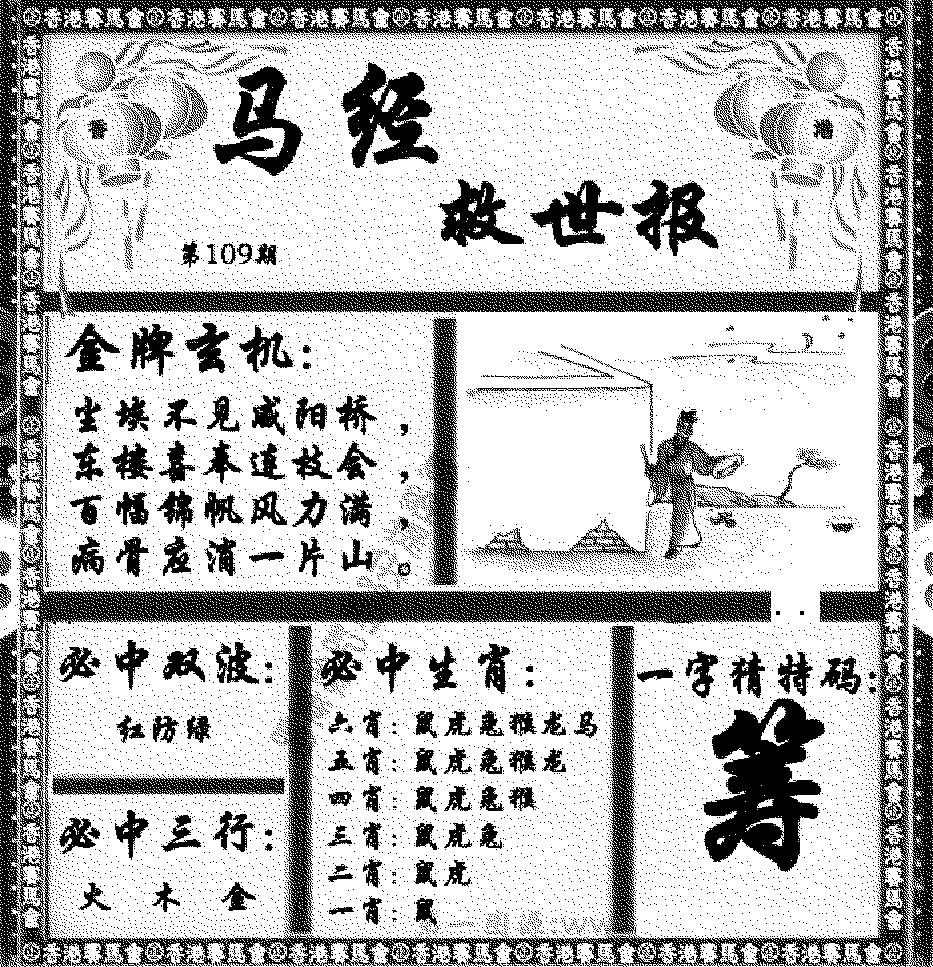 香港賽馬會 香港賽馬會 香港賽馬會 香港賽馬會 香港賽馬會 香港賽馬會 香港賽馬會
香
港
马 经
救 世 报
第109期
金牌玄机：
尘埃不见咸阳桥，
东楼喜奉连枝会，
百幅锦帆风力满，
病骨应消一片山。
必中双波：
红防绿
必中三行：
火 木 金
必中生肖：
六肖：鼠虎兔猴龙马
五肖：鼠虎兔猴龙
四肖：鼠虎兔猴
三肖：鼠虎兔
二肖：鼠虎
一肖：鼠
一字猜特码：
筹
香港賽馬會 香港賽馬會 香港賽馬會 香港賽馬會 香港賽馬會 香港賽馬會 香港賽馬會